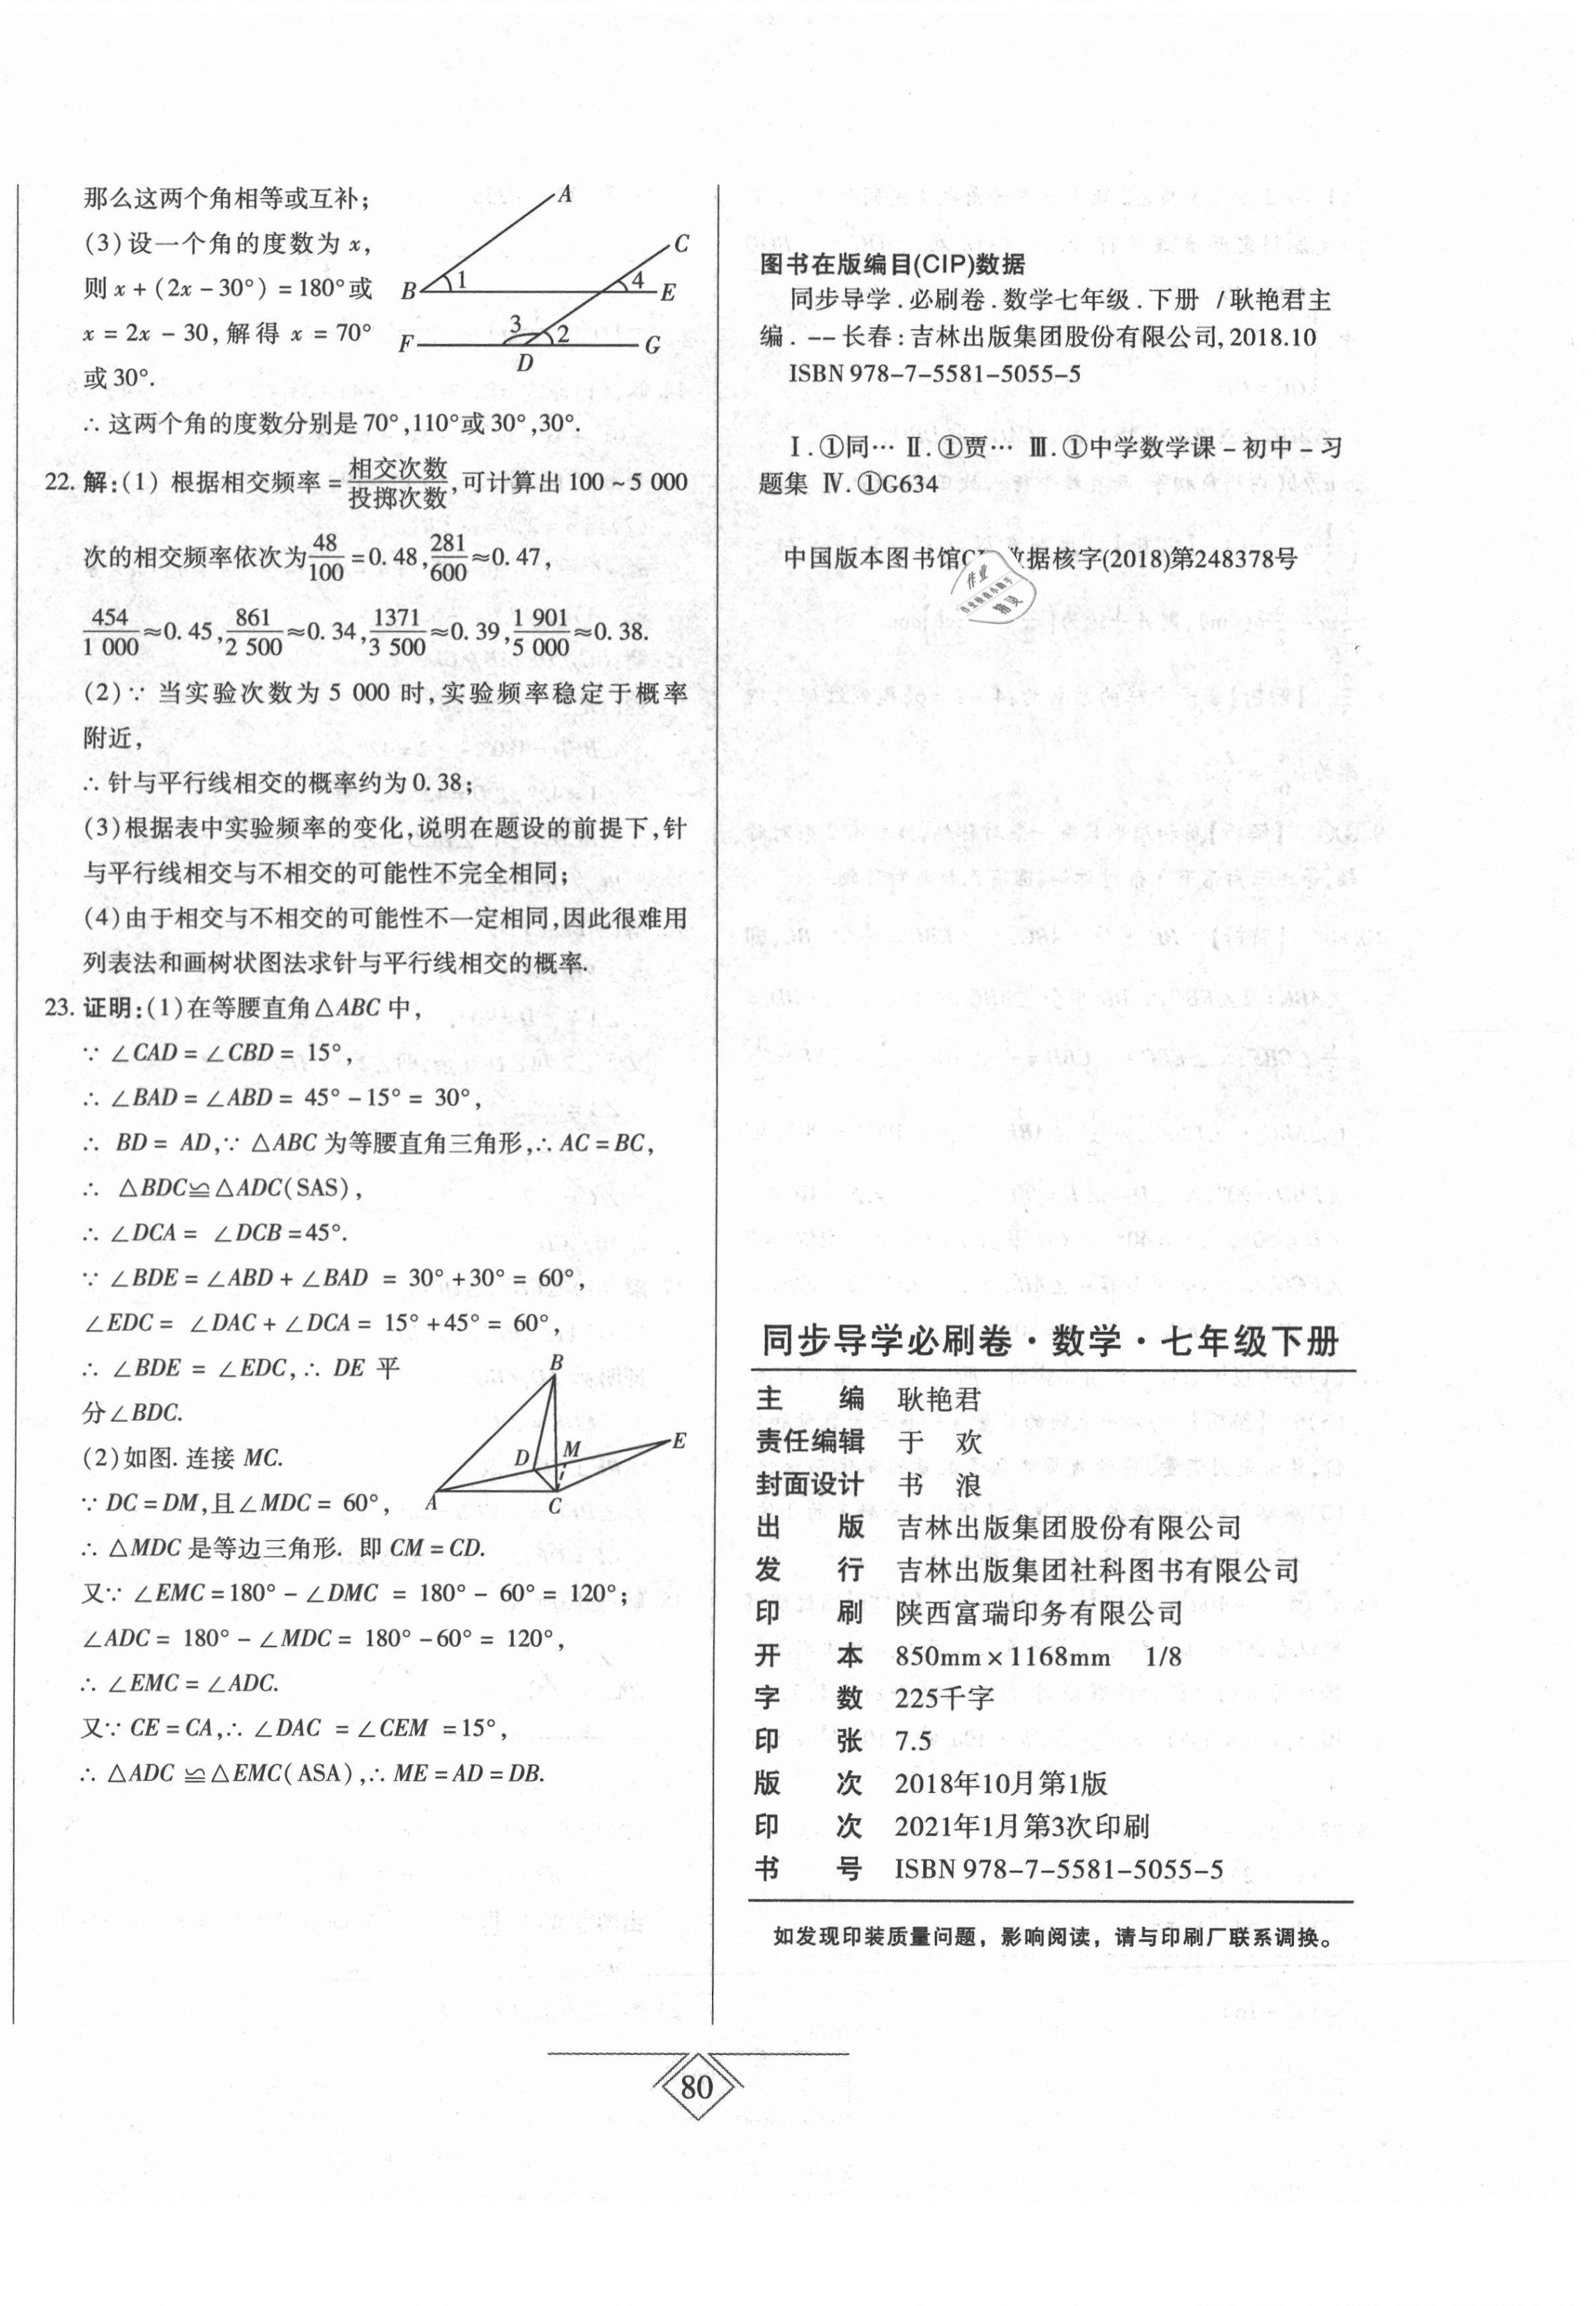 那么这两个角相等或互补；
(3)设一个角的度数为 x,
则 x + (2x - 30°) = 180°或
x = 2x - 30,解得 x = 70°
或 30°.
A
C
B 1 4 E
F 3 2 G
D
∴ 这两个角的度数分别是 70°,110°或 30°,30°.
22. 解:(1) 根据相交频率 = 相交次数/投掷次数,可计算出 100 ~ 5 000
次的相交频率依次为 48/100 = 0. 48, 281/600 ≈ 0. 47,
454/1 000 ≈ 0. 45, 861/2 500 ≈ 0. 34, 1371/3 500 ≈ 0. 39, 1 901/5 000 ≈ 0. 38.
(2)∵ 当实验次数为 5 000 时,实验频率稳定于概率
附近,
∴ 针与平行线相交的概率约为 0. 38;
(3)根据表中实验频率的变化,说明在题设的前提下,针
与平行线相交与不相交的可能性不完全相同;
(4)由于相交与不相交的可能性不一定相同,因此很难用
列表法和画树状图法求针与平行线相交的概率.
23. 证明:(1)在等腰直角△ABC 中,
∵ ∠CAD = ∠CBD = 15°,
∴ ∠BAD = ∠ABD = 45° - 15° = 30°,
∴ BD = AD,∵ △ABC 为等腰直角三角形,∴ AC = BC,
∴ △BDC≌△ADC(SAS),
∴ ∠DCA = ∠DCB = 45°.
∵ ∠BDE = ∠ABD + ∠BAD = 30° + 30° = 60°,
∠EDC = ∠DAC + ∠DCA = 15° + 45° = 60°,
∴ ∠BDE = ∠EDC,∴ DE 平
分∠BDC.
(2)如图. 连接 MC.
∵ DC = DM,且∠MDC = 60°,
B
D M E
A C
∴ △MDC 是等边三角形. 即 CM = CD.
又∵ ∠EMC = 180° - ∠DMC = 180° - 60° = 120°;
∠ADC = 180° - ∠MDC = 180° - 60° = 120°,
∴ ∠EMC = ∠ADC.
又∵ CE = CA,∴ ∠DAC = ∠CEM = 15°,
∴ △ADC ≌△EMC(ASA),∴ ME = AD = DB.
图书在版编目(CIP)数据
同步导学.必刷卷.数学七年级.下册 /耿艳君主
编. -- 长春:吉林出版集团股份有限公司,2018.10
ISBN 978-7-5581-5055-5
Ⅰ.①同… Ⅱ.①贾… Ⅲ.①中学数学课-初中-习
题集 Ⅳ.①G634
中国版本图书馆C 据核字(2018)第248378号
作业
精灵
同步导学必刷卷·数学·七年级下册
主 编 耿艳君
责任编辑 于 欢
封面设计 书 浪
出 版 吉林出版集团股份有限公司
发 行 吉林出版集团社科图书有限公司
印 刷 陕西富瑞印务有限公司
开 本 850mm×1168mm 1/8
字 数 225千字
印 张 7.5
版 次 2018年10月第1版
印 次 2021年1月第3次印刷
书 号 ISBN 978-7-5581-5055-5
如发现印装质量问题，影响阅读，请与印刷厂联系调换。
80